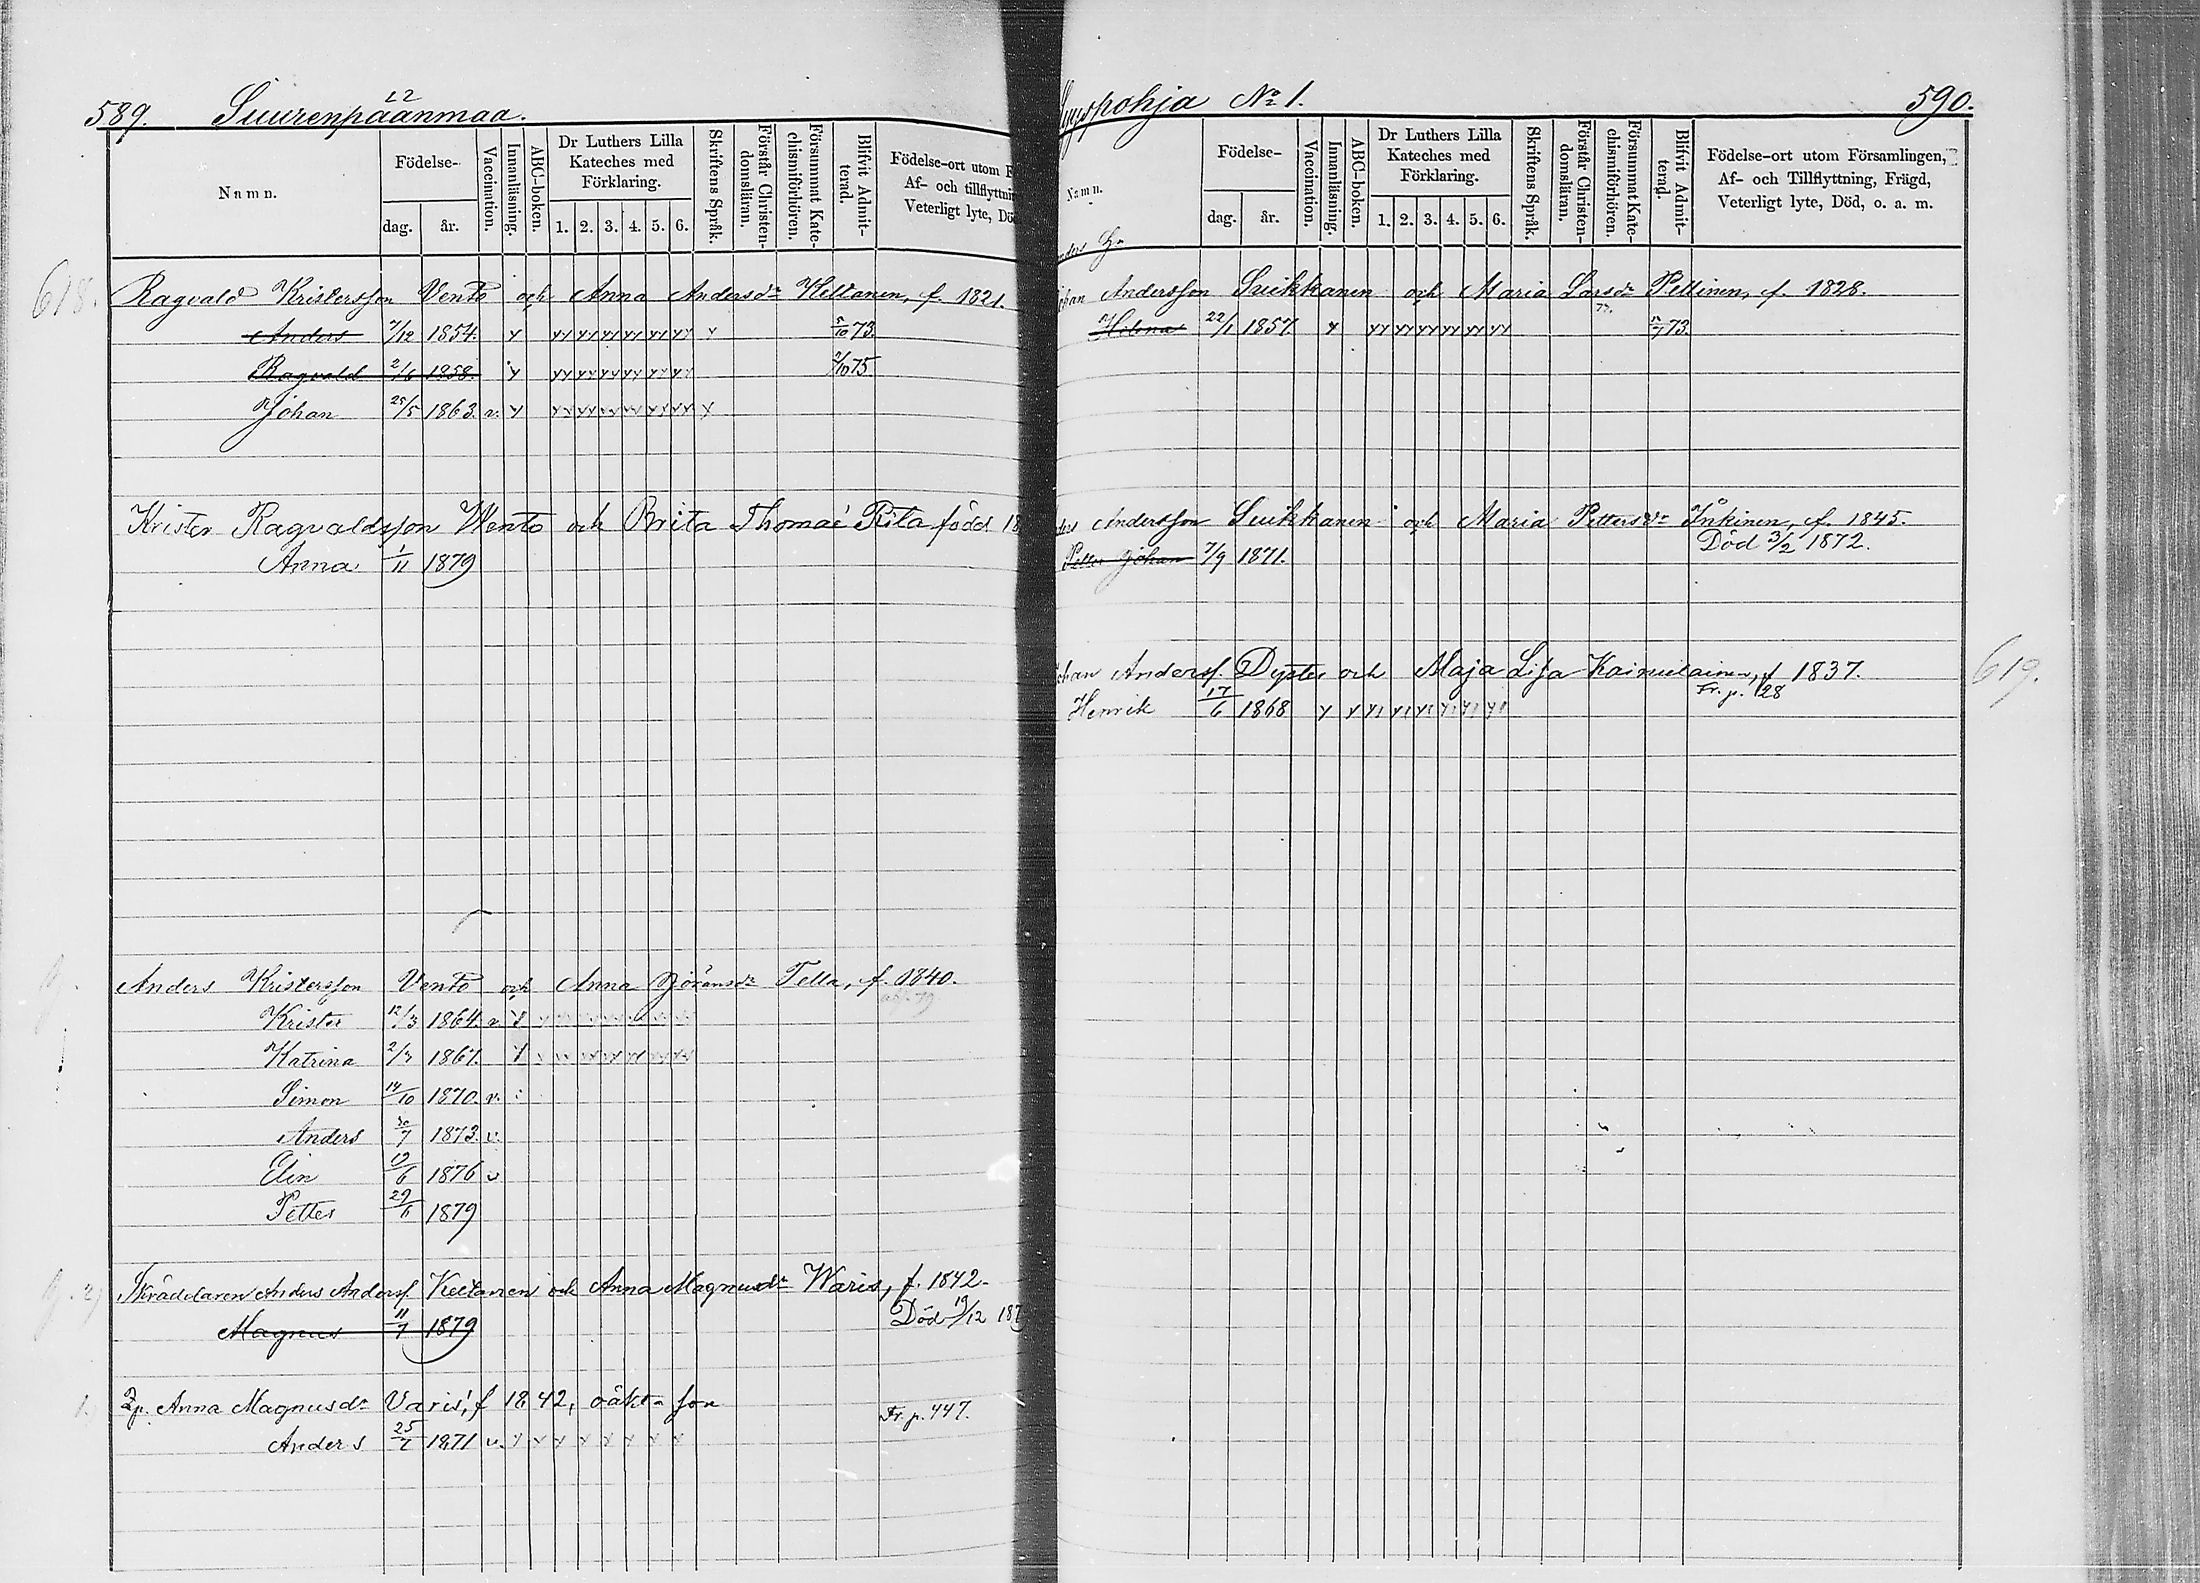 589. Suurenpäänmaa. 22
Namn. Födelse- dag. år. Vaccination. Innanläsning. ABC-boken. Dr Luthers Lilla Kateches med Förklaring. 1. 2. 3. 4. 5. 6. Skriftens Språk. Förstår Christendomsläran. Försummat Katechismiförhören. Blifvit Admitterad. Födelse-ort utom F
Af- och tillflyttni
Veterligt lyte, Dö
618.
Ragvald Kristersson Vento och Anna Andersdr Keltanen, f. 1821.
Anders 7/12 1854. 73.
Ragvald 2/6 1858. 2/10 75
Johan 25/5 1863. v.
Krister Ragvaldsson Wento och Brita Thomaé Rita född 18
Anna 1/11 1879
Anders Kristersson Vento och Anna Göransdr Tella, f. 1840.
Krister 12/3 1864. v.
Katrina 2/3 1867.
Simon 14/10 1870. v.
Anders 30/7 1873. v.
Elin 19/6 1876 v
Petter 29/6 1879
Skräddaren Anders Anderss. Keltanen och Anna Magnusdr Waris, f. 1842.
Magnus 11/7 1879 Död 19/12 187
Anna Magnusdr Varis, f 1842, oäkta son Fr. p. 447.
Anders 25/7 1871 v.
pohja No 1. 590.
Namn. Födelse- dag. år. Vaccination. Innanläsning. ABC-boken. Dr Luthers Lilla Kateches med Förklaring. 1. 2. 3. 4. 5. 6. Skriftens Språk. Förstår Christendomsläran. Försummat Katechismiförhören. Blifvit Admitterad. Födelse-ort utom Församlingen,
Af- och Tillflyttning, Frägd,
Veterligt lyte, Död, o. a. m.
ohan Andersson Suikkanen och Maria Larsdr Pellinen, f. 1828.
Helena 22/1 1857. 73.
ders Andersson Suikkanen och Maria Pettersdr Inkinen, f. 1845.
Petter Johan 7/9 1871. Död 3/2 1872.
ohan Anderss. Dyster och Maja Lisa Kaimulainen, f 1837.
Henrik 17/6 1868 Fr. p. 128
619.